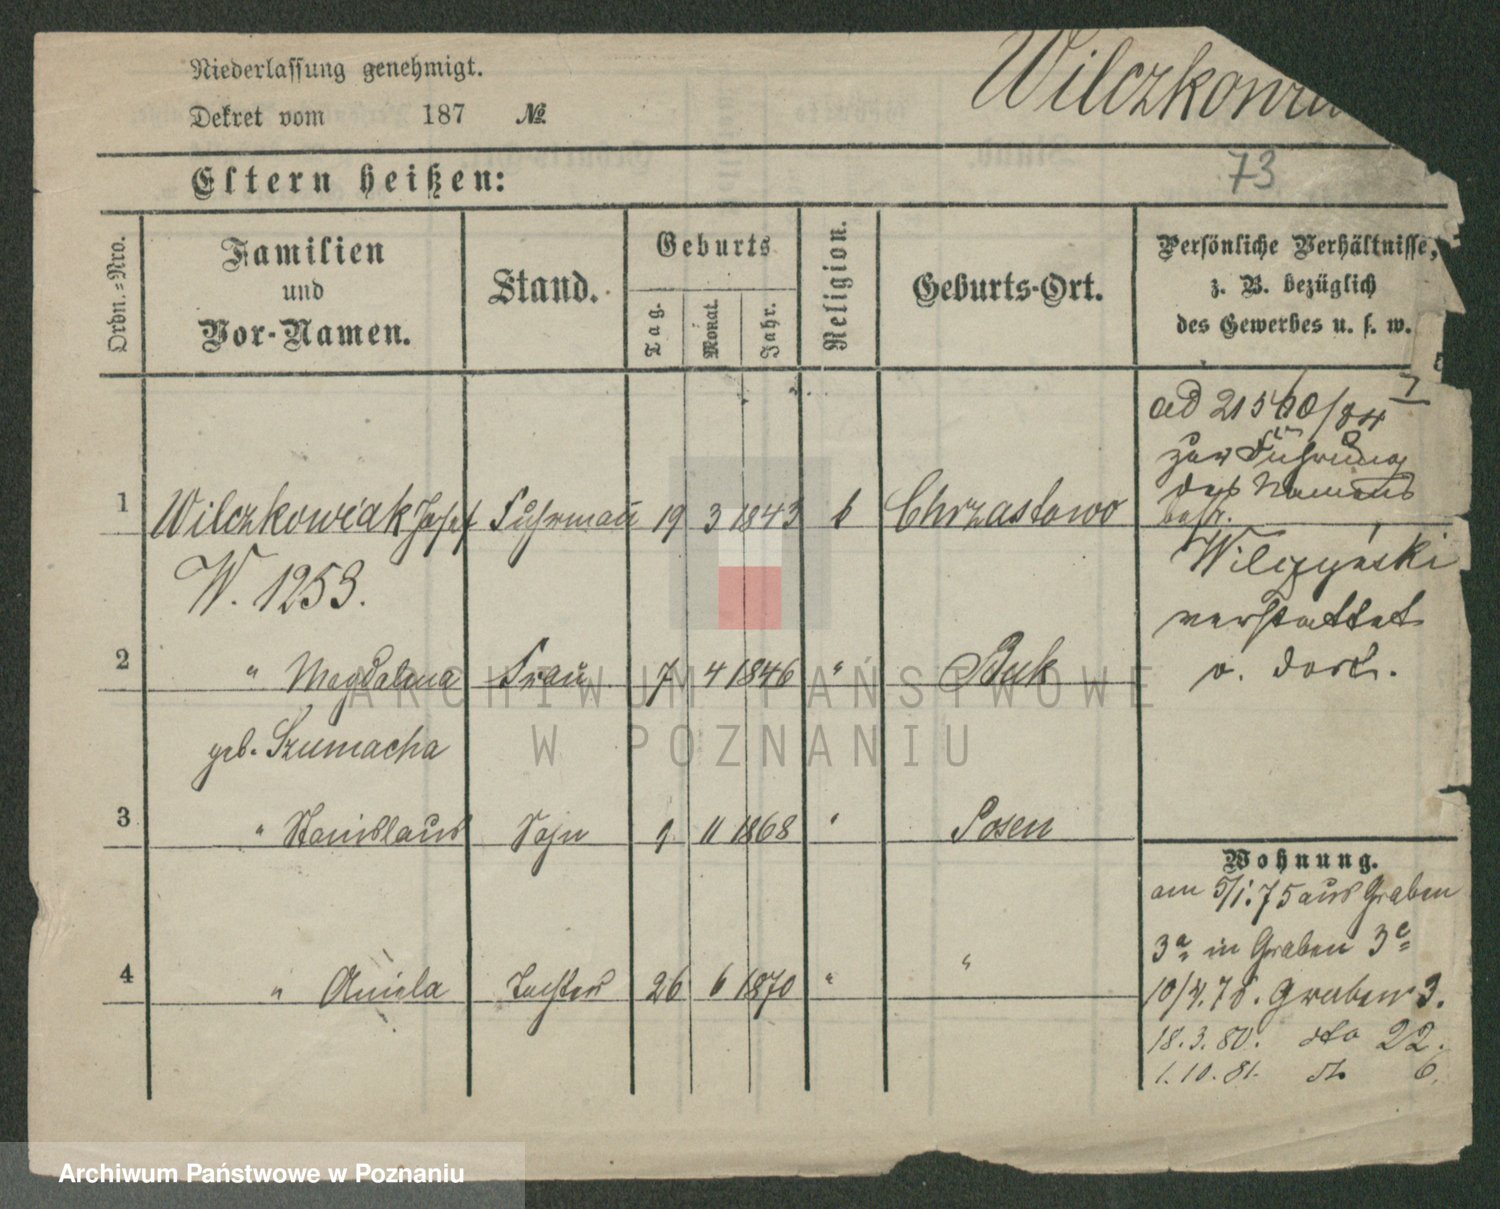 Niederlassung genehmigt.
Dekret vom 187 №
Wilczkowia
73
Eltern heißen:
Ordn.-Nro.
Familien
und
Vor-Namen.
Stand.
Geburts
Tag.
Monat.
Jahr.
Religion.
Geburts-Ort.
Persönliche Verhältnisse,
z. B. bezüglich
des Gewerbes u. s. w.
1 Wilczkowiak Josef Fuhrmann 19 3 1843 k Chrzastowo
W. 1253.
2 " Magdalena Frau 7 4 1846 " Buk
geb. Szumacha
3 " Stanislaus Sohn 9 11 1868 " Posen
4 " Aniela Tochter 26 6 1870 " "
ad 21560/84
zur Führung
des Namens
Wilczyński
verstattet
v. dort.
Wohnung.
am 5/1.75 aus Graben
3a in Graben 3c
10/4.78. Graben 3.
18.3.80. dto 22.
1.10.81. dto 6.
ARCHIWUM PAŃSTWOWE
W POZNANIU
Archiwum Państwowe w Poznaniu